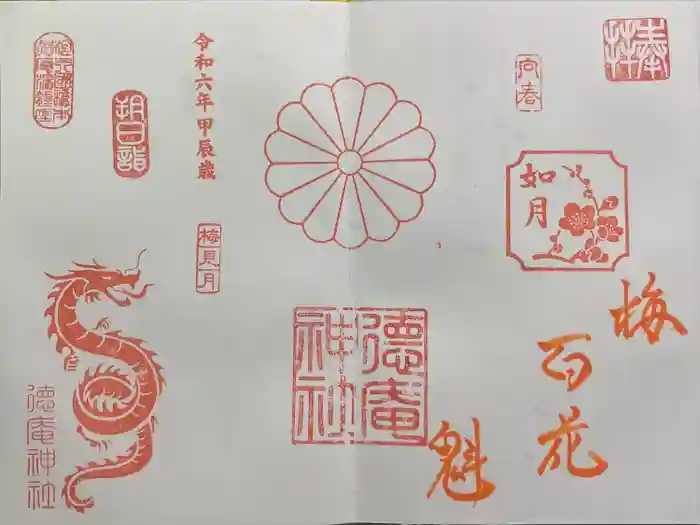 奉拝
向春
如月
梅
百花
魁
徳庵
神社
令和六年 甲辰歳
梅見月
朔日詣
徳庵神社